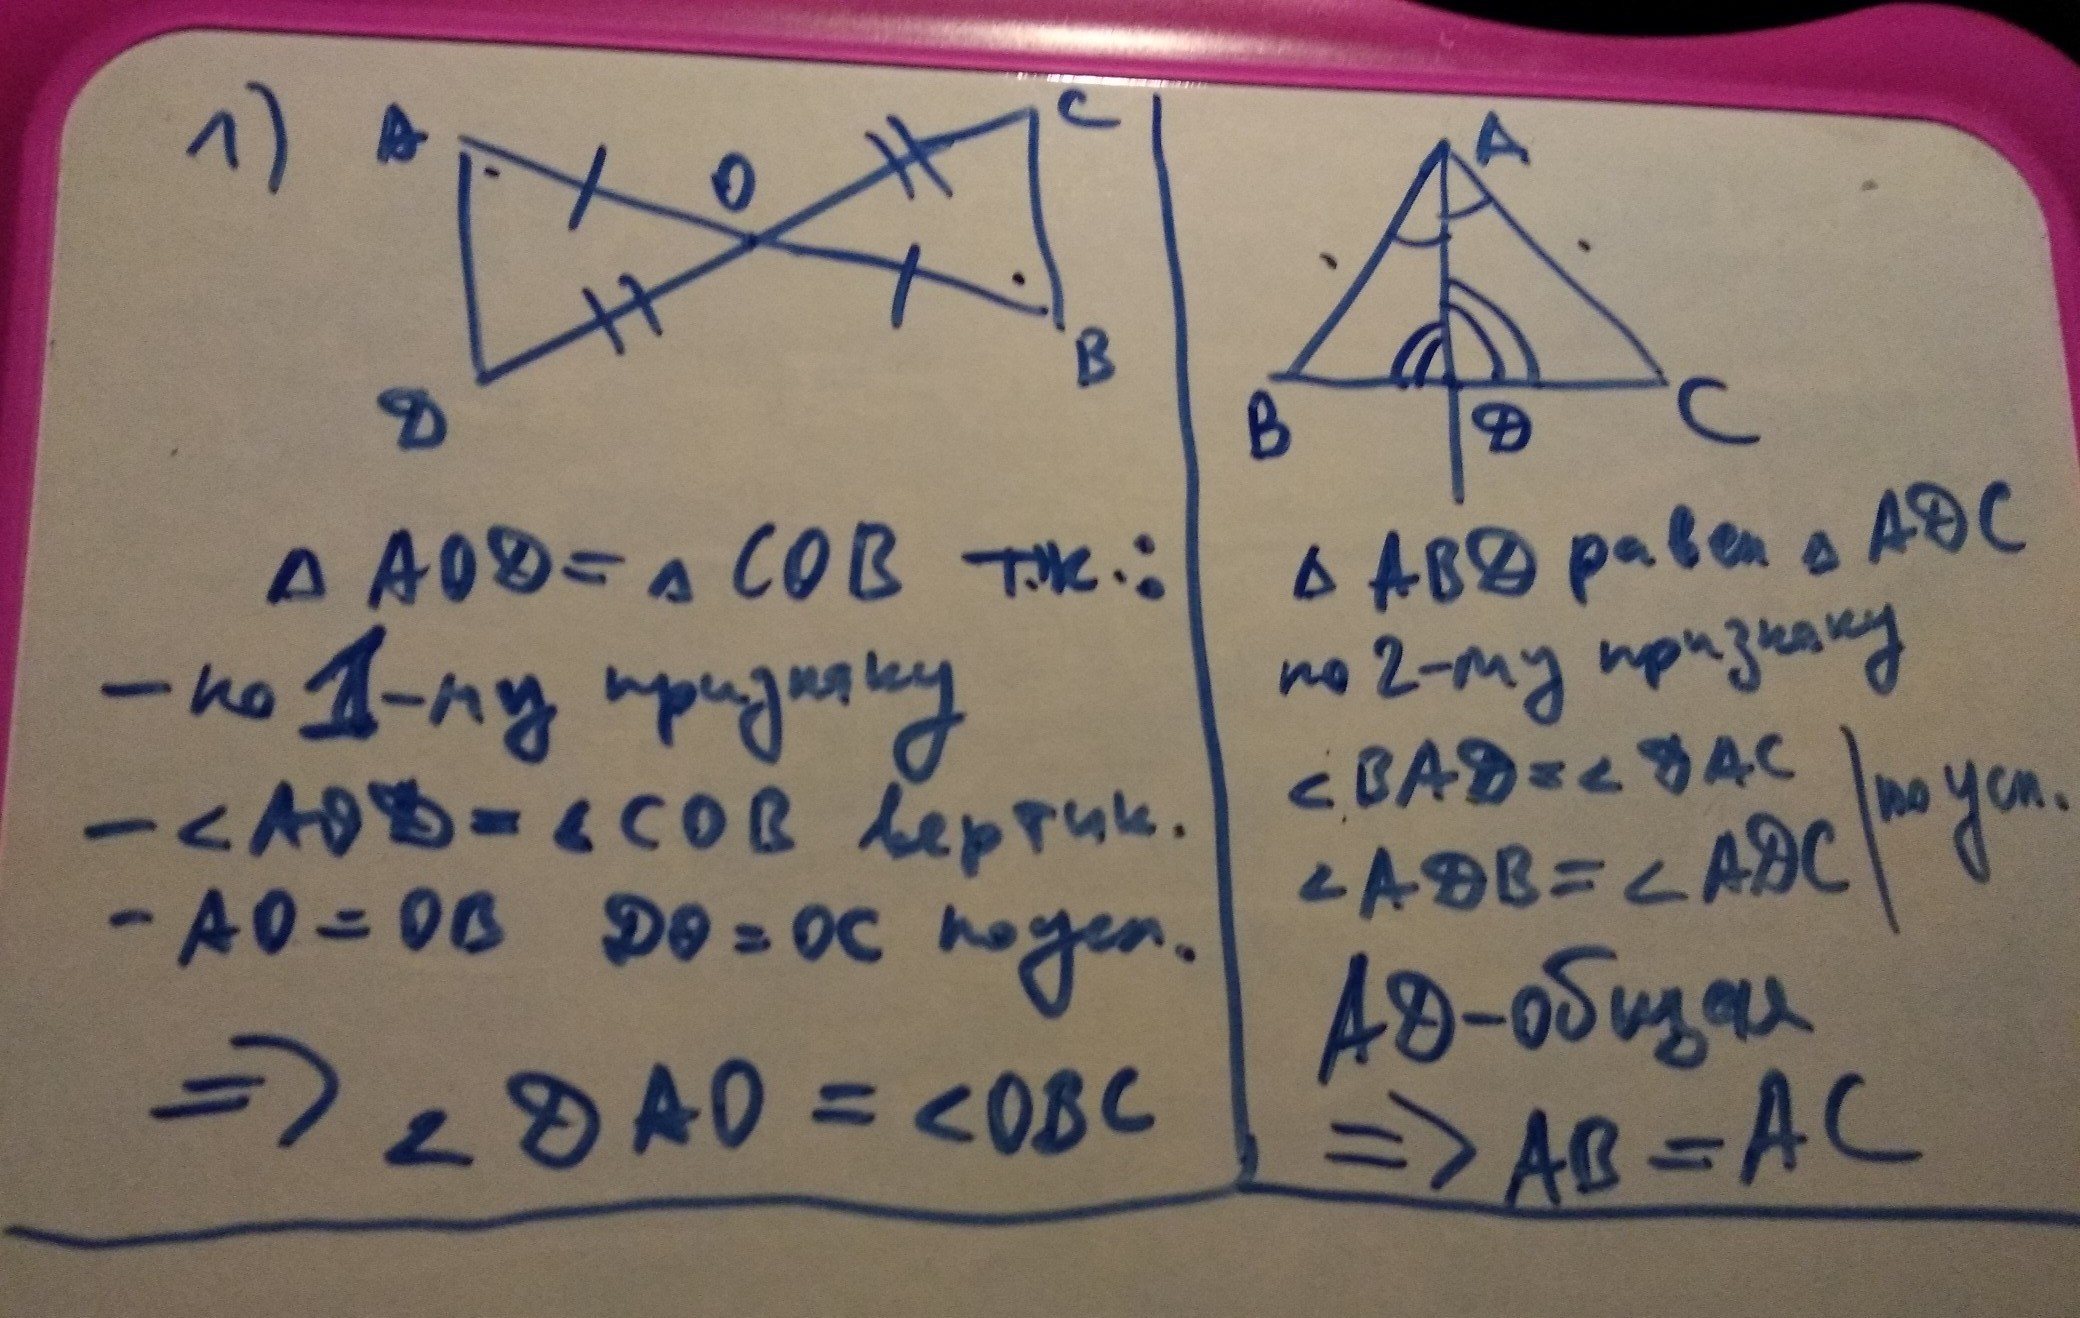 1)
A O C
D B
△ AOD = △ COB т.к.:
- по 1-му признаку
- ∠AOD = ∠COB вертик.
- AO = OB DO = OC по усл.
=> ∠DAO = ∠OBC
A
B D C
△ ABD равен △ ADC
по 2-му признаку
∠BAD = ∠DAC | по усл.
∠ADB = ∠ADC
AD - общая
=> AB = AC